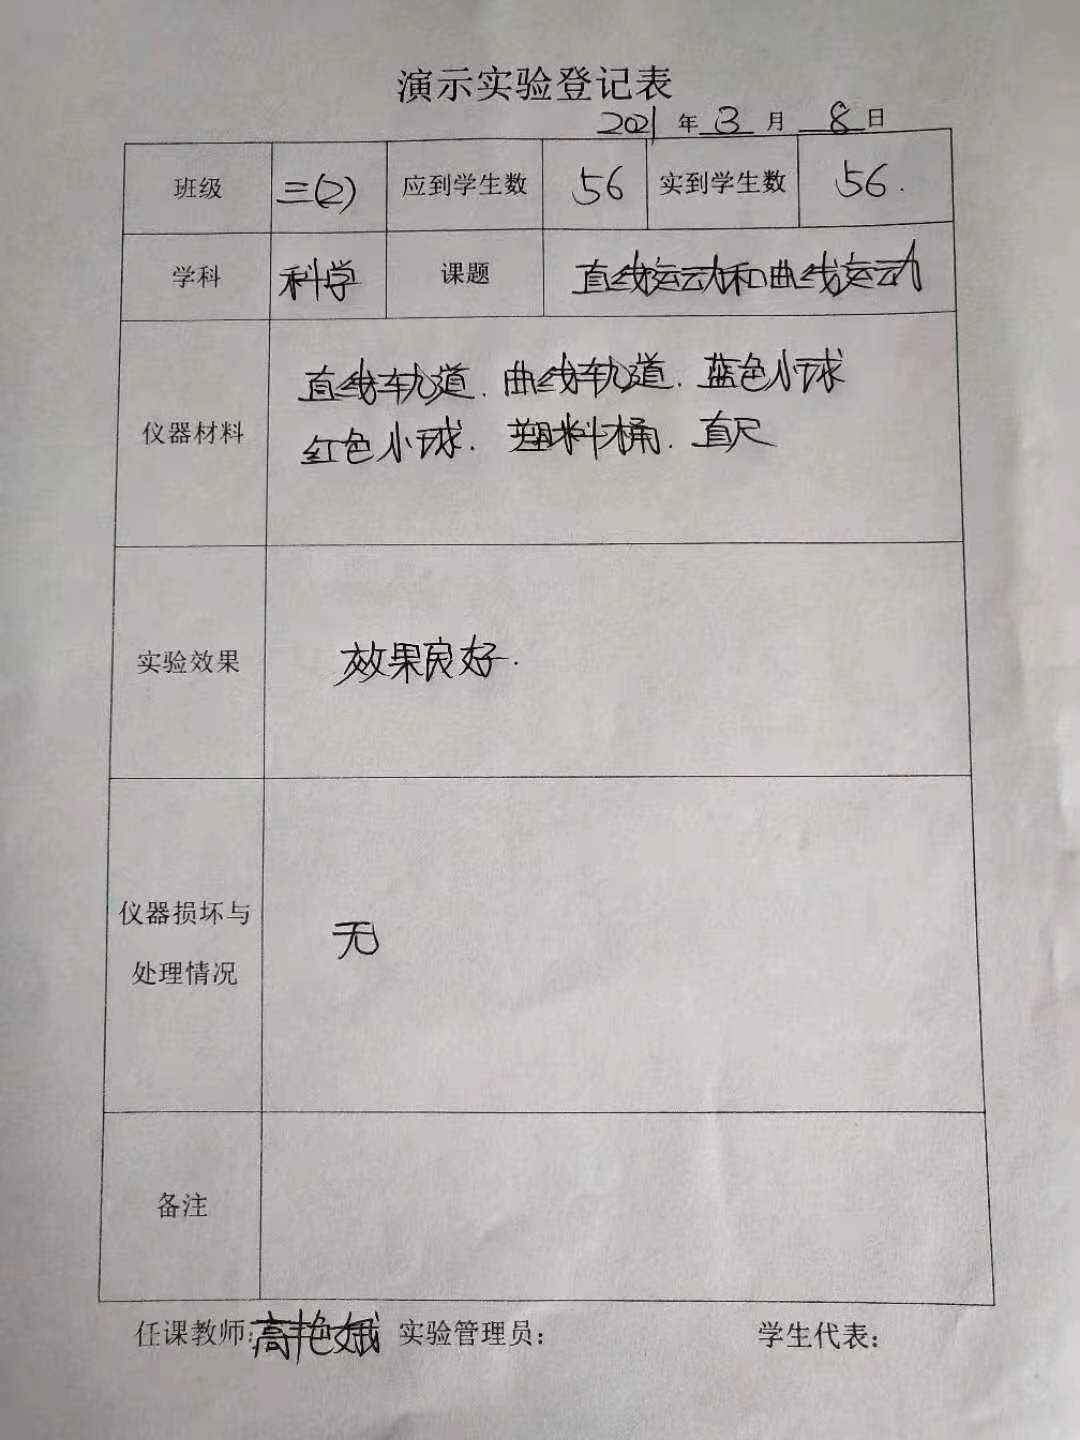 演示实验登记表
2021年3月8日
班级 三(2) 应到学生数 56 实到学生数 56.
学科 科学 课题 直线运动和曲线运动
仪器材料
直线轨道.曲线轨道.蓝色小球
红色小球.塑料桶.直尺
实验效果 效果良好.
仪器损坏与
处理情况
无
备注
任课教师:高艳娥 实验管理员: 学生代表: